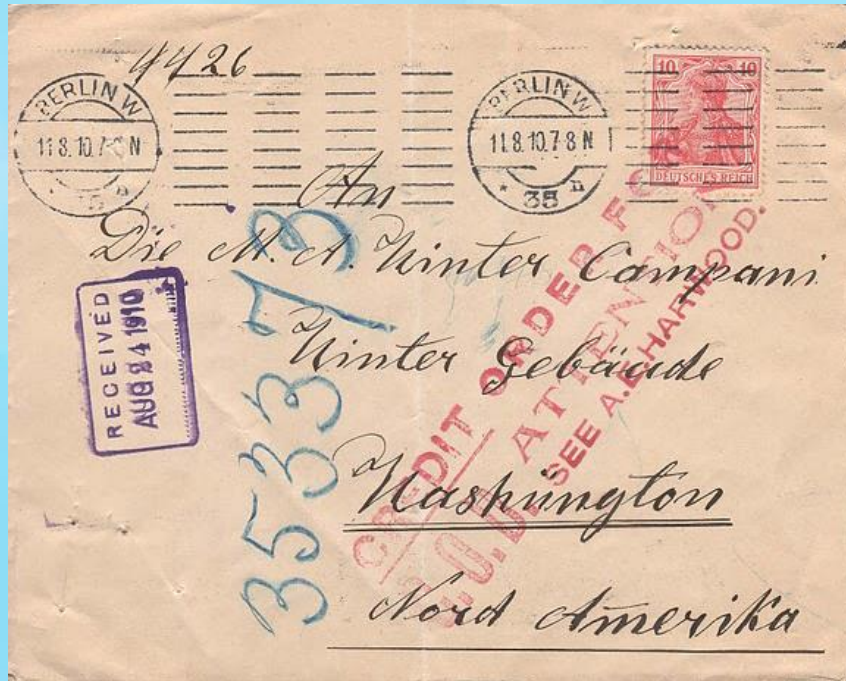 4426
BERLIN W
11.8.10.7-8 N
BERLIN W
11.8.10.7-8 N
* 35 n
10 10
DEUTSCHES REICH
An
Die M. A. Winter Campani
Winter Gebäude
Washüngton
Nord Amerika
RECEIVED
AUG 24 1910
353373
CREDIT ORDER
ATTENTION
C.O.D. SEE A.E. HARWOOD.